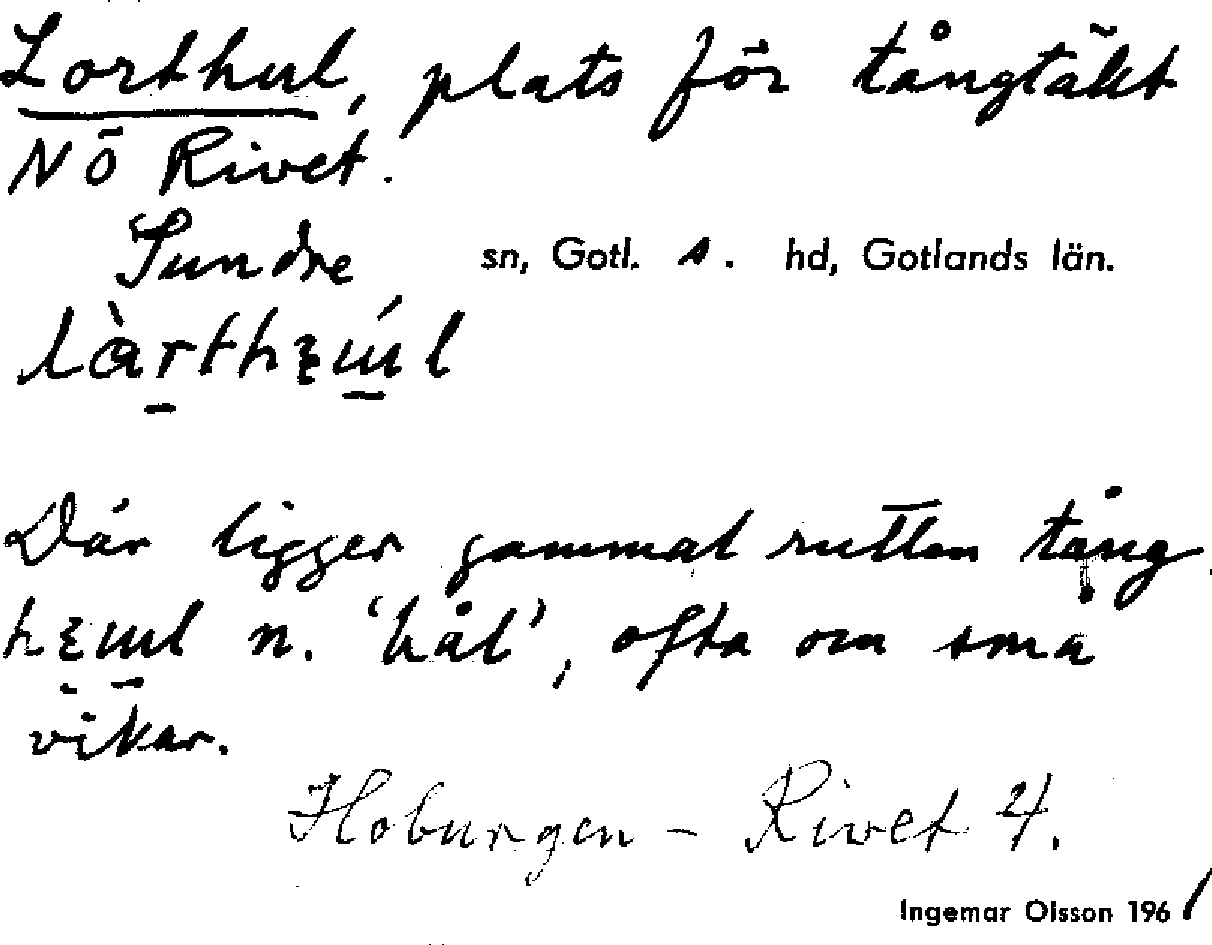 Lorthul, plats för tångtäkt
NÖ Rivet.
Sundre sn, Gotl. s. hd, Gotlands län.
Där ligger gammal rutten tång
n. 'hål', ofta om små
vikar.
Hoburgen – Rivet 4.
Ingemar Olsson 1961